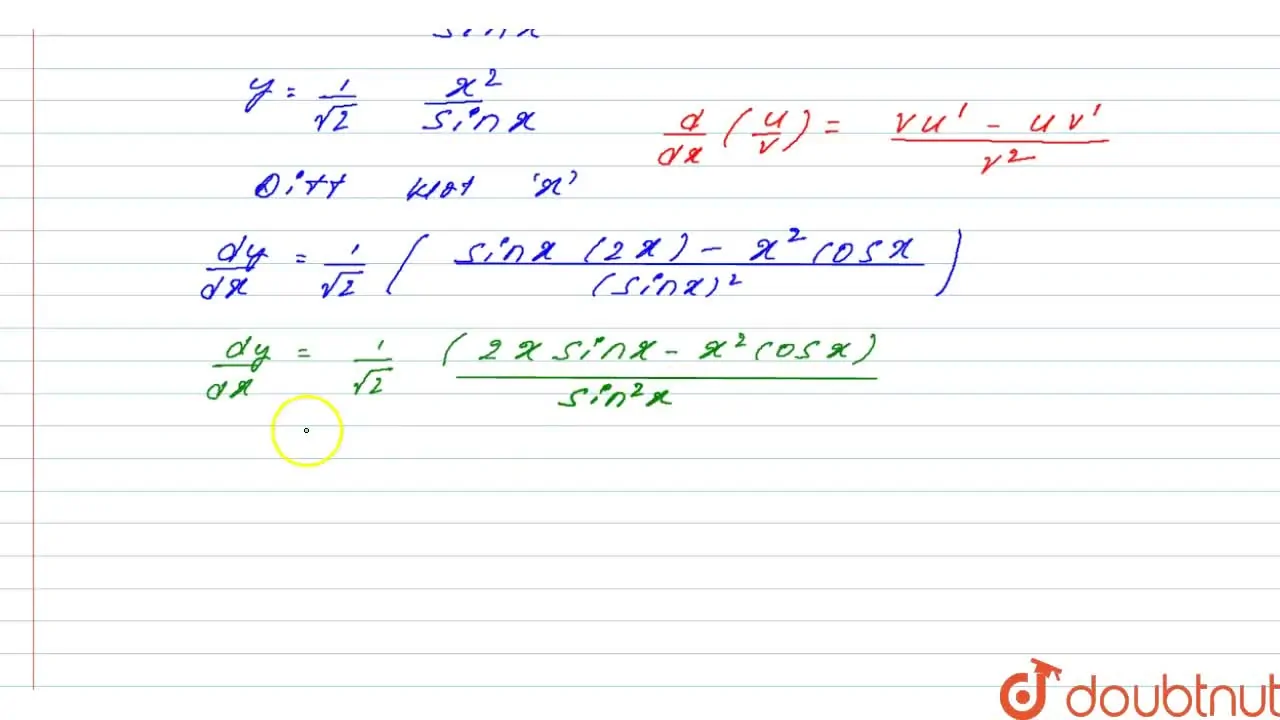 sinx
y = 1/√2 x²/sinx
d/dx (u/v) = vu' - uv'/v²
Diff wrt 'x'
dy/dx = 1/√2 ( sinx (2x) - x² cosx / (sinx)² )
dy/dx = 1/√2 (2x sinx - x² cosx) / sin²x
doubtnut